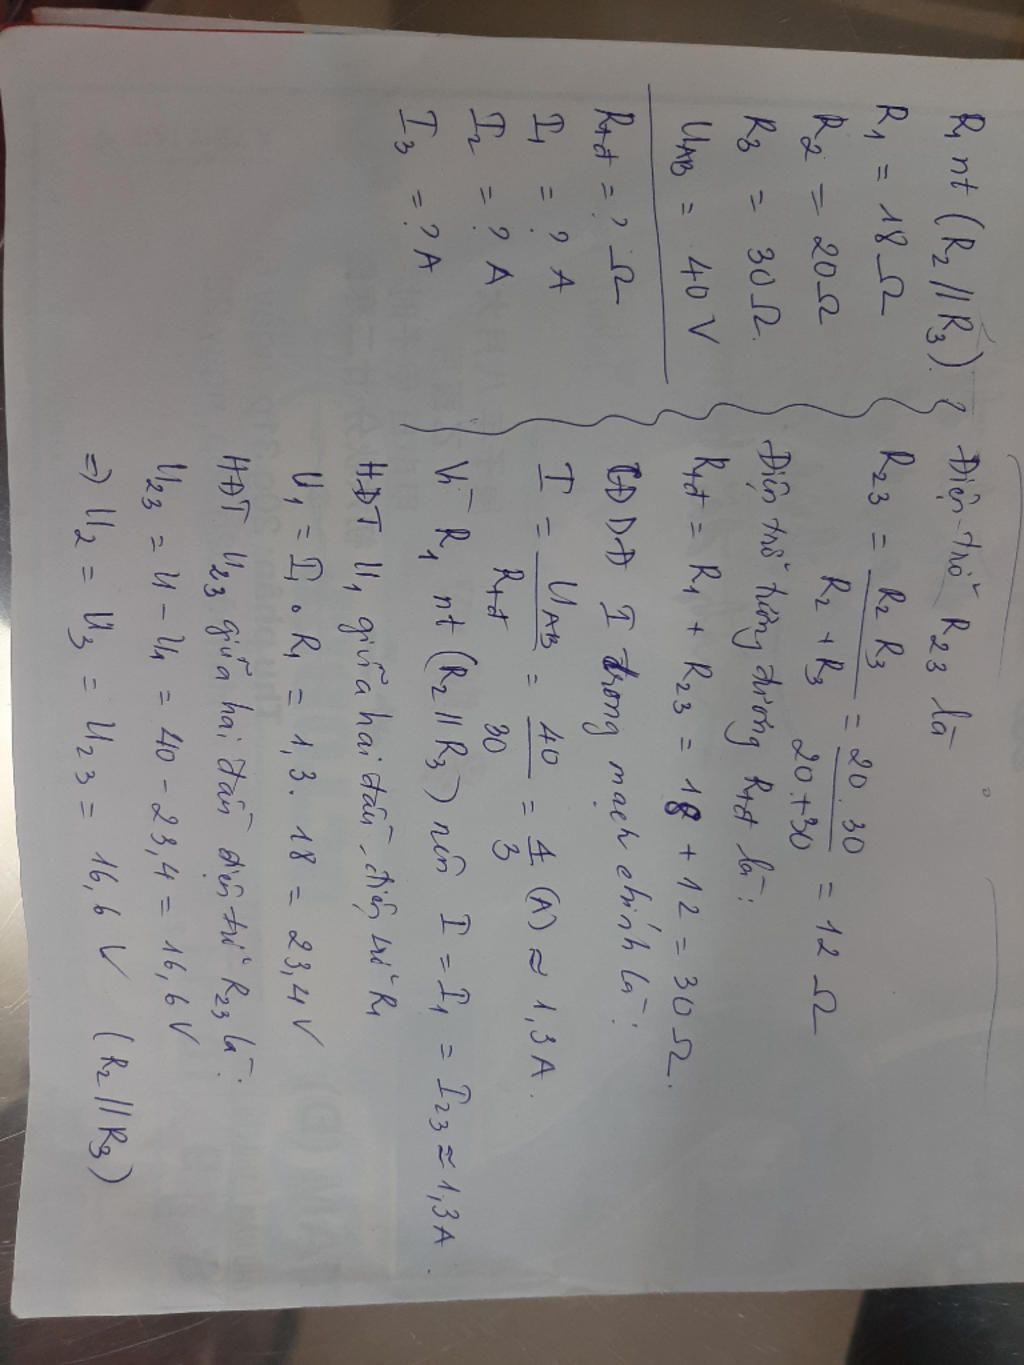 R1 nt (R2 // R3).
R1 = 18 Ω
R2 = 20 Ω
R3 = 30 Ω.
UAB = 40 V
Rtđ = ? Ω
I1 = ? A
I2 = ? A
I3 = ? A
Điện trở R23 là
R23 = R2 R3 / R2 + R3 = 20 . 30 / 20 + 30 = 12 Ω
Điện trở tương đương Rtđ là :
Rtđ = R1 + R23 = 18 + 12 = 30 Ω.
CĐDĐ I trong mạch chính là :
I = UAB / Rtđ = 40 / 30 = 4 / 3 (A) ≈ 1,3 A.
Vì R1 nt (R2 // R3) nên I = I1 = I23 ≈ 1,3 A.
HĐT U1 giữa hai đầu điện trở R1
U1 = I1 . R1 = 1,3 . 18 = 23,4 V
HĐT U23 giữa hai đầu điện trở R23 là :
U23 = U - U1 = 40 - 23,4 = 16,6 V
⇒ U2 = U3 = U23 = 16,6 V (R2 // R3)